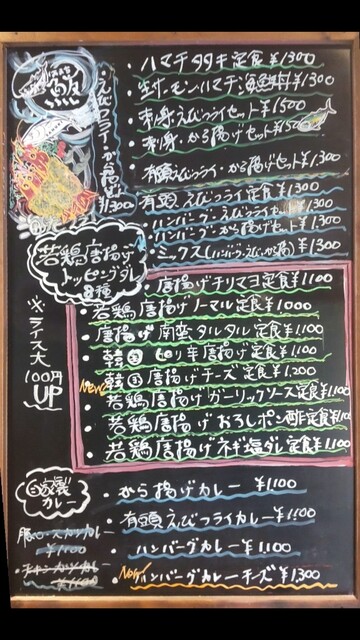 ・ハマチタタキ定食¥1300
・サーモンハマチ海鮮丼¥1300
・刺身、えびフライセット¥1500
・刺身、から揚げセット¥1500
有頭えびフライ・から揚げセット¥1300
・えびフライ・から揚げ ¥1300
・有頭えびフライ定食¥1300
・ハンバーグ・えびフライセット¥1300
・ハンバーグ・から揚げセット¥1300
・ミックス(ハンバーグ、えび、から揚)¥1300
若鶏唐揚げ
トッピングダレ
8種
・唐揚げチリマヨ定食¥1100
・若鶏唐揚げノーマル定食¥1000
・唐揚げ南蛮タルタル定食¥1100
・韓国ピリ辛唐揚げ定食¥1100
NEW・韓国唐揚げチーズ定食¥1,200
・若鶏唐揚げガーリックソース定食¥1100
・若鶏唐揚げおろしポン酢定食¥1100
・若鶏唐揚げネギ塩ダレ定食¥1100
※ライス大
100円
UP
自家製
カレー
・から揚げカレー ¥1100
・有頭えびフライカレー ¥1100
・ハンバーグカレー ¥1,100
NEW・ハンバーグカレーチーズ ¥1,300
¥1100
チキンカツカレー
¥1100